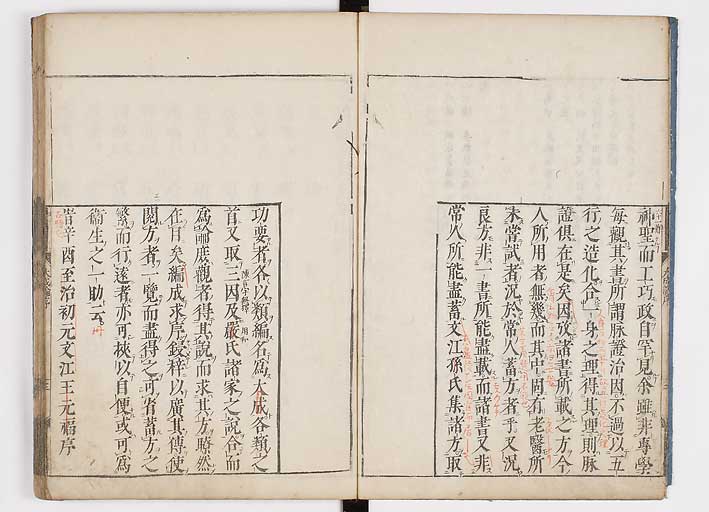 神聖而工巧政自罕見余雖非專學
每觀其書所謂脉證治因不過以五
行之造化合一身之理得其理則脉
證俱在是矣因攷諸書所載之方今
人所用者無幾而其中固有老醫所
未嘗試者況於常人蓄方者乎又況
良方非一書所能盡載而諸書又非
常人所能盡蓄文江孫氏集諸方取
功要者各以類編名爲大成各類之
首又取三因及嚴氏諸家之說合而
爲論庶觀者得其說而求其方瞭然
在目矣編成求序鋟梓以廣其傳使
閱方者一覽而盡得之可省蓄方之
繁而行遠者亦可挾以自便或可爲
衞生之一助云
旹辛酉至治初元文江王元福序